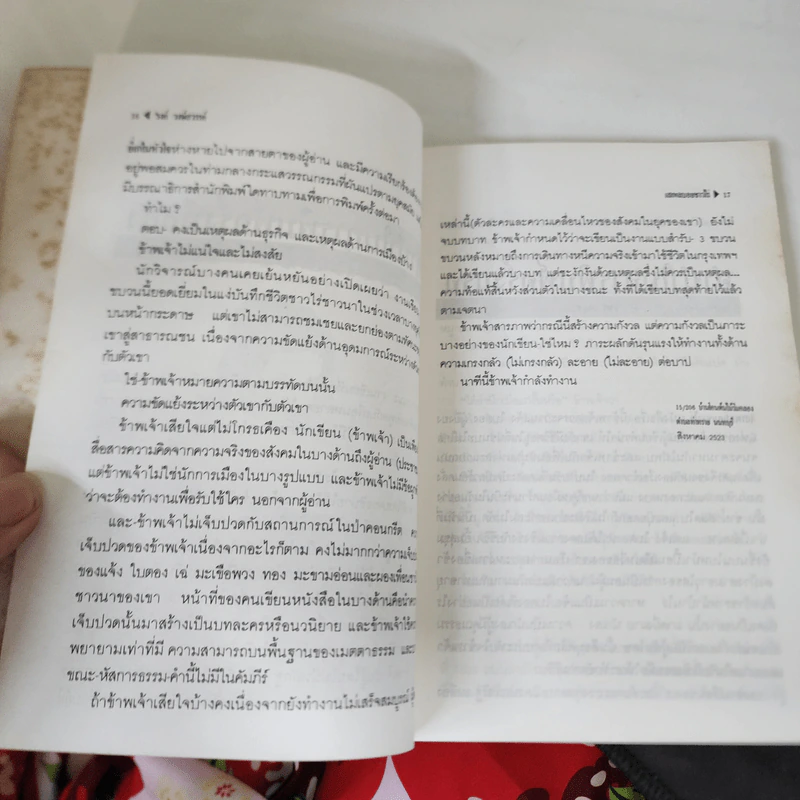 วงษ์สวรรค์
ห่างหายไปจากสายตาของผู้อ่าน และมีความเรียกร้อง
อยู่พอสมควรในท่ามกลางกระแสวรรณกรรมที่ผันแปรตามยุคสมัย
มีบรรณาธิการสำนักพิมพ์ใดทาบทามเพื่อการพิมพ์ครั้งต่อมา
ทำไม ?
ตอบ- คงเป็นเหตุผลด้านธุรกิจ และเหตุผลด้านการเมืองบ้าง
ข้าพเจ้าไม่แน่ใจและไม่สงสัย
นักวิจารณ์บางคนเคยเย้นหยันอย่างเปิดเผยว่า งานเขียน
ขบวนนี้ยอดเยี่ยมในแง่บันทึกชีวิตชาวไร่ชาวนาในช่วงเวลา
บนหน้ากระดาษ แต่เขาไม่สามารถชมเชยและยกย่องตาม
เขาสู่สาธารณชน เนื่องจากความขัดแย้งด้านอุดมการณ์ระหว่าง
กับตัวเขา
ใช่-ข้าพเจ้าหมายความตามบรรทัดบนนั้น
ความขัดแย้งระหว่างตัวเขากับตัวเขา
ข้าพเจ้าเสียใจแต่ไม่โกรธเคือง นักเขียน (ข้าพเจ้า) เป็น
สื่อสารความคิดจากความจริงของสังคมในบางด้านถึงผู้อ่าน
แต่ข้าพเจ้าไม่ใช่นักการเมืองในบางรูปแบบ และข้าพเจ้าไม่มี
ว่าจะต้องทำงานเพื่อรับใช้ใคร นอกจากผู้อ่าน
และ-ข้าพเจ้าไม่เจ็บปวดกับสถานการณ์ในป่าคอนกรีต
เจ็บปวดของข้าพเจ้าเนื่องจากอะไรก็ตาม คงไม่มากกว่าความ
ของแจ้ง ใบตอง เฉ่ มะเขือพวง ทอง มะขามอ่อนและผองเพื่อน
ชาวนาของเขา หน้าที่ของคนเขียนหนังสือในบางด้านคือ
เจ็บปวดนั้นมาสร้างเป็นบทละครหรือนวนิยาย และข้าพเจ้า
พยายามเท่าที่มี ความสามารถบนพื้นฐานของเมตตาธรรม และ
ขณะ-หัสการธรรม-คำนี้ไม่มีในคัมภีร์
ถ้าข้าพเจ้าเสียใจบ้างคงเนื่องจากยังทำงานไม่เสร็จสมบูรณ์
17
เหล่านี้(ตัวละครและความเคลื่อนไหวของสังคมในยุคของเขา) ยังไม่
จบบทบาท ข้าพเจ้ากำหนดไว้ว่าจะเขียนเป็นงานแบบสำรับ- 3 ขบวน
ขบวนหลังหมายถึงการเดินทางหนีความจริงเข้ามาใช้ชีวิตในกรุงเทพฯ
และได้เขียนแล้วบางบท แต่ชะงักงันด้วยเหตุผลซึ่งไม่ควรเป็นเหตุผล...
ความท้อแท้สิ้นหวังส่วนตัวในบางขณะ ทั้งที่ได้เขียนบทสุดท้ายไว้แล้ว
ตามเจตนา
ข้าพเจ้าสารภาพว่ากรณีนี้สร้างความกังวล แต่ความกังวลเป็นภาระ
บางอย่างของนักเขียน-ใช่ไหม ? ภาระผลักดันรุนแรงให้ทำงานทั้งด้าน
ความเกรงกลัว (ไม่เกรงกลัว) ละอาย (ไม่ละอาย) ต่อบาป
นาฑีนี้ข้าพเจ้ากำลังทำงาน
นนทบุรี
สิงหาคม 2523